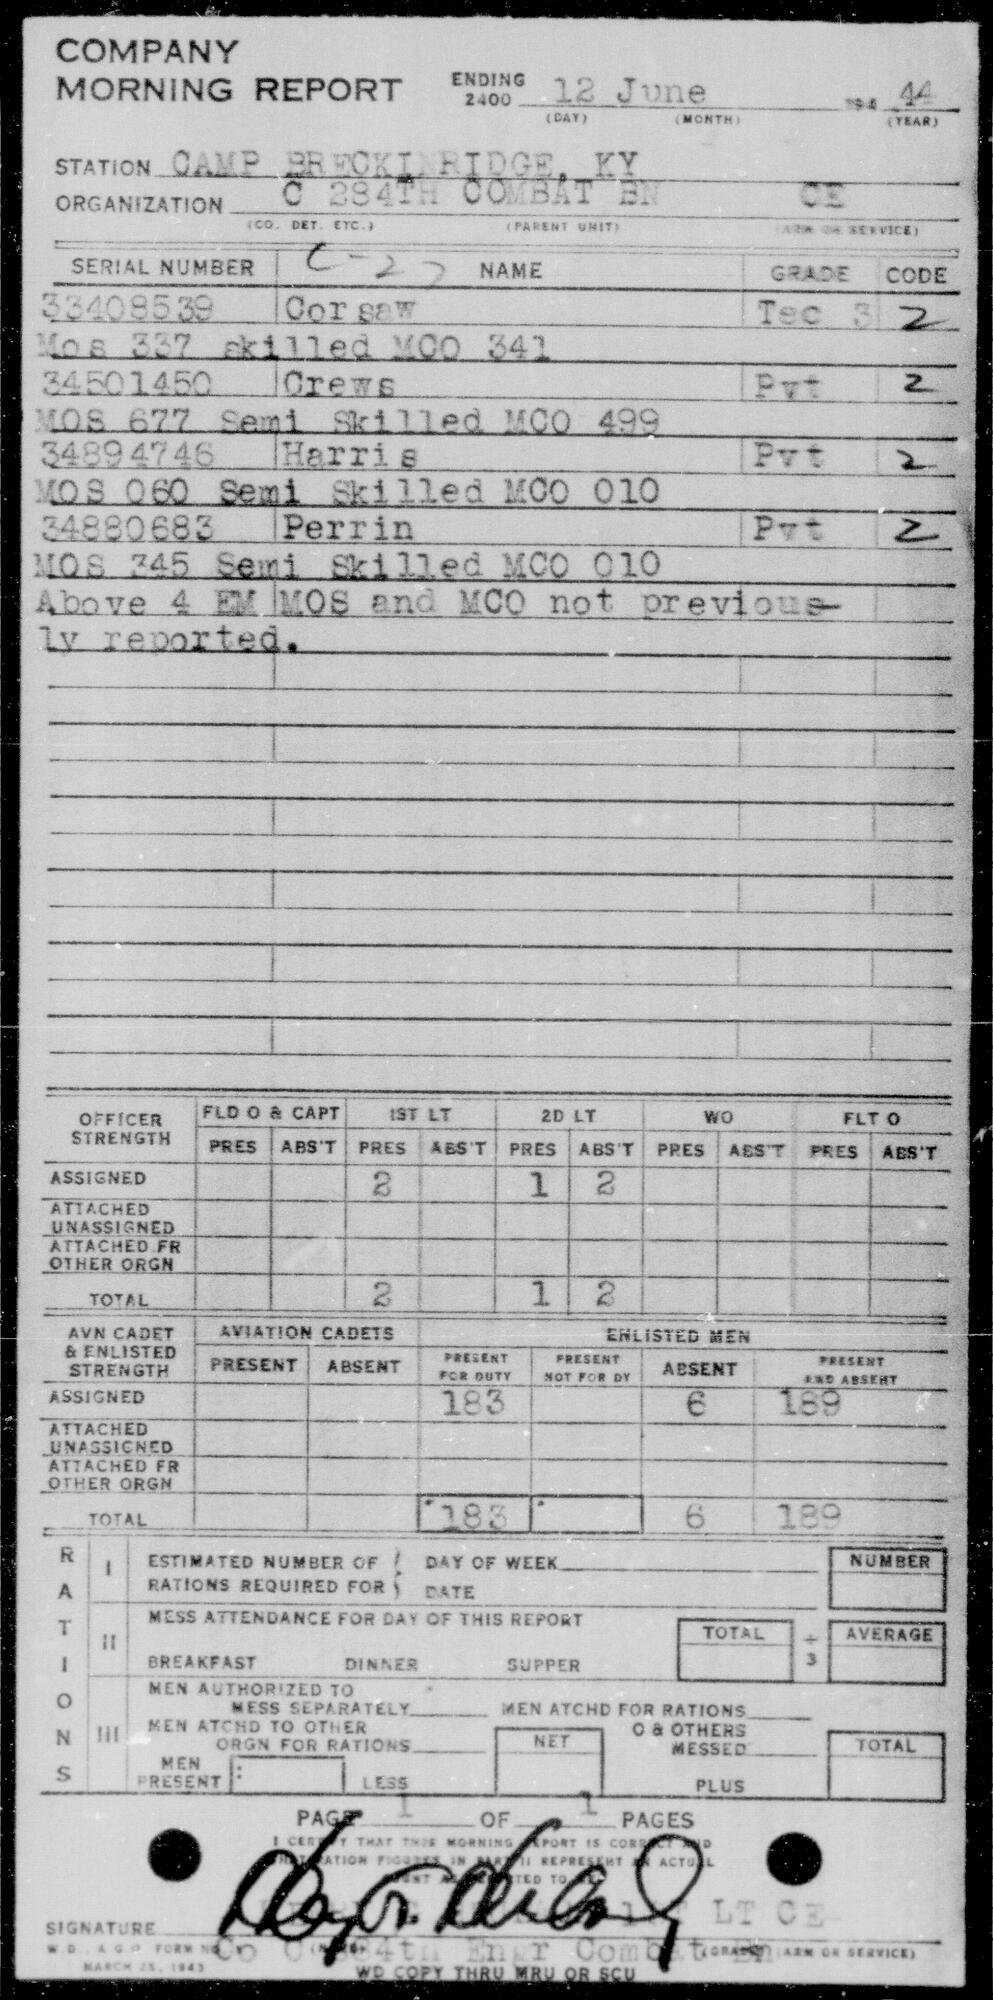 COMPANY
MORNING REPORT ENDING 2400 12 June 194 44
(DAY) (MONTH) (YEAR)
STATION CAMP BRECKINRIDGE, KY
ORGANIZATION C 284TH COMBAT BN CE
(CO. DET. ETC.) (PARENT UNIT) (ARM OR SERVICE)
SERIAL NUMBER C-27 NAME GRADE CODE
33408539 Corsaw Tec 3 2
Mos 337 skilled MCO 341
34501450 Crews Pvt 2
MOS 677 Semi Skilled MCO 499
34894746 Harris Pvt 2
MOS 060 Semi Skilled MCO 010
34880683 Perrin Pvt 2
MOS 345 Semi Skilled MCO 010
Above 4 EM MOS and MCO not previous-
ly reported.
OFFICER STRENGTH FLD O & CAPT 1ST LT 2D LT WO FLT O
PRES ABS'T PRES ABS'T PRES ABS'T PRES ABS'T PRES ABS'T
ASSIGNED 2 1 2
ATTACHED
UNASSIGNED
ATTACHED FR
OTHER ORGN
TOTAL 2 1 2
AVN CADET & ENLISTED STRENGTH AVIATION CADETS ENLISTED MEN
PRESENT ABSENT PRESENT FOR DUTY PRESENT NOT FOR DY ABSENT PRESENT AND ABSENT
ASSIGNED 183 6 189
ATTACHED
UNASSIGNED
ATTACHED FR
OTHER ORGN
TOTAL 183 6 189
RATIONS
I ESTIMATED NUMBER OF DAY OF WEEK NUMBER
RATIONS REQUIRED FOR DATE
II MESS ATTENDANCE FOR DAY OF THIS REPORT TOTAL ÷ 3 AVERAGE
BREAKFAST DINNER SUPPER
III MEN AUTHORIZED TO
MESS SEPARATELY MEN ATCHD FOR RATIONS
MEN ATCHD TO OTHER
ORGN FOR RATIONS NET O & OTHERS MESSED TOTAL
MEN PRESENT : LESS PLUS
PAGE 1 OF 1 PAGES
I CERTIFY THAT THIS MORNING REPORT IS CORRECT AND
THAT RATION FIGURES IN PART II REPRESENT AN ACTUAL
SIGNATURE 1ST LT CE
Co C 284th Engr Combat Bn
W. D., A. G. O. FORM NO. 1 (NAME) (GRADE) (ARM OR SERVICE)
MARCH 25, 1943
WD COPY THRU MRU OR SCU